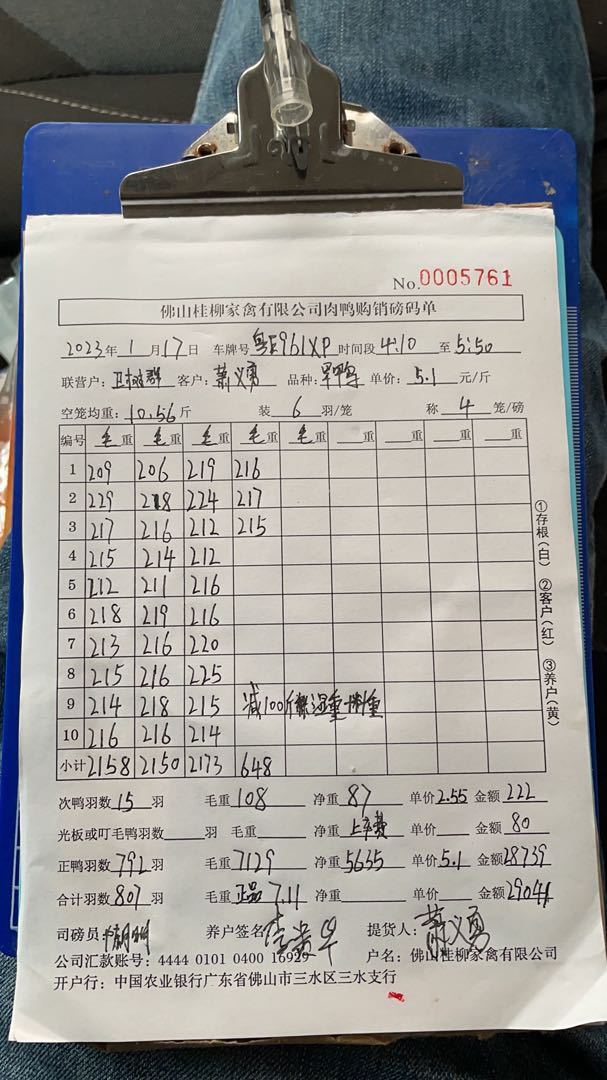 No.0005761
佛山桂柳家禽有限公司肉鸭购销磅码单
2023年 1 月 17 日 车牌号 粤E961XP 时间段 4:10 至 5:50
联营户: 卫树群 客户: 萧义勇 品种: 旱鸭 单价: 5.1 元/斤
空笼均重: 10.56 斤 装 6 羽/笼 称 4 笼/磅
编号 毛重 毛重 毛重 毛重 毛重 重 重 重 重
1 209 206 219 216
2 229 218 224 217
3 217 216 212 215
4 215 214 212
5 212 211 216
6 218 219 216
7 213 216 220
8 215 216 225
9 214 218 215 减100斤 湿重 料重
10 216 216 214
小计 2158 2150 2173 648
次鸭羽数 15 羽 毛重 108 净重 87 单价 2.55 金额 222
光板或叮毛鸭羽数 羽 毛重 净重 上车费 单价 金额 80
正鸭羽数 792 羽 毛重 7129 净重 5635 单价 5.1 金额 28739
合计羽数 807 羽 毛重 正品 7.11 净重 单价 金额 29041
司磅员: 养户签名 提货人: 萧义勇
公司汇款账号: 4444 0101 0400 16929 户名: 佛山桂柳家禽有限公司
开户行: 中国农业银行广东省佛山市三水区三水支行
①存根(白) ②客户(红) ③养户(黄)